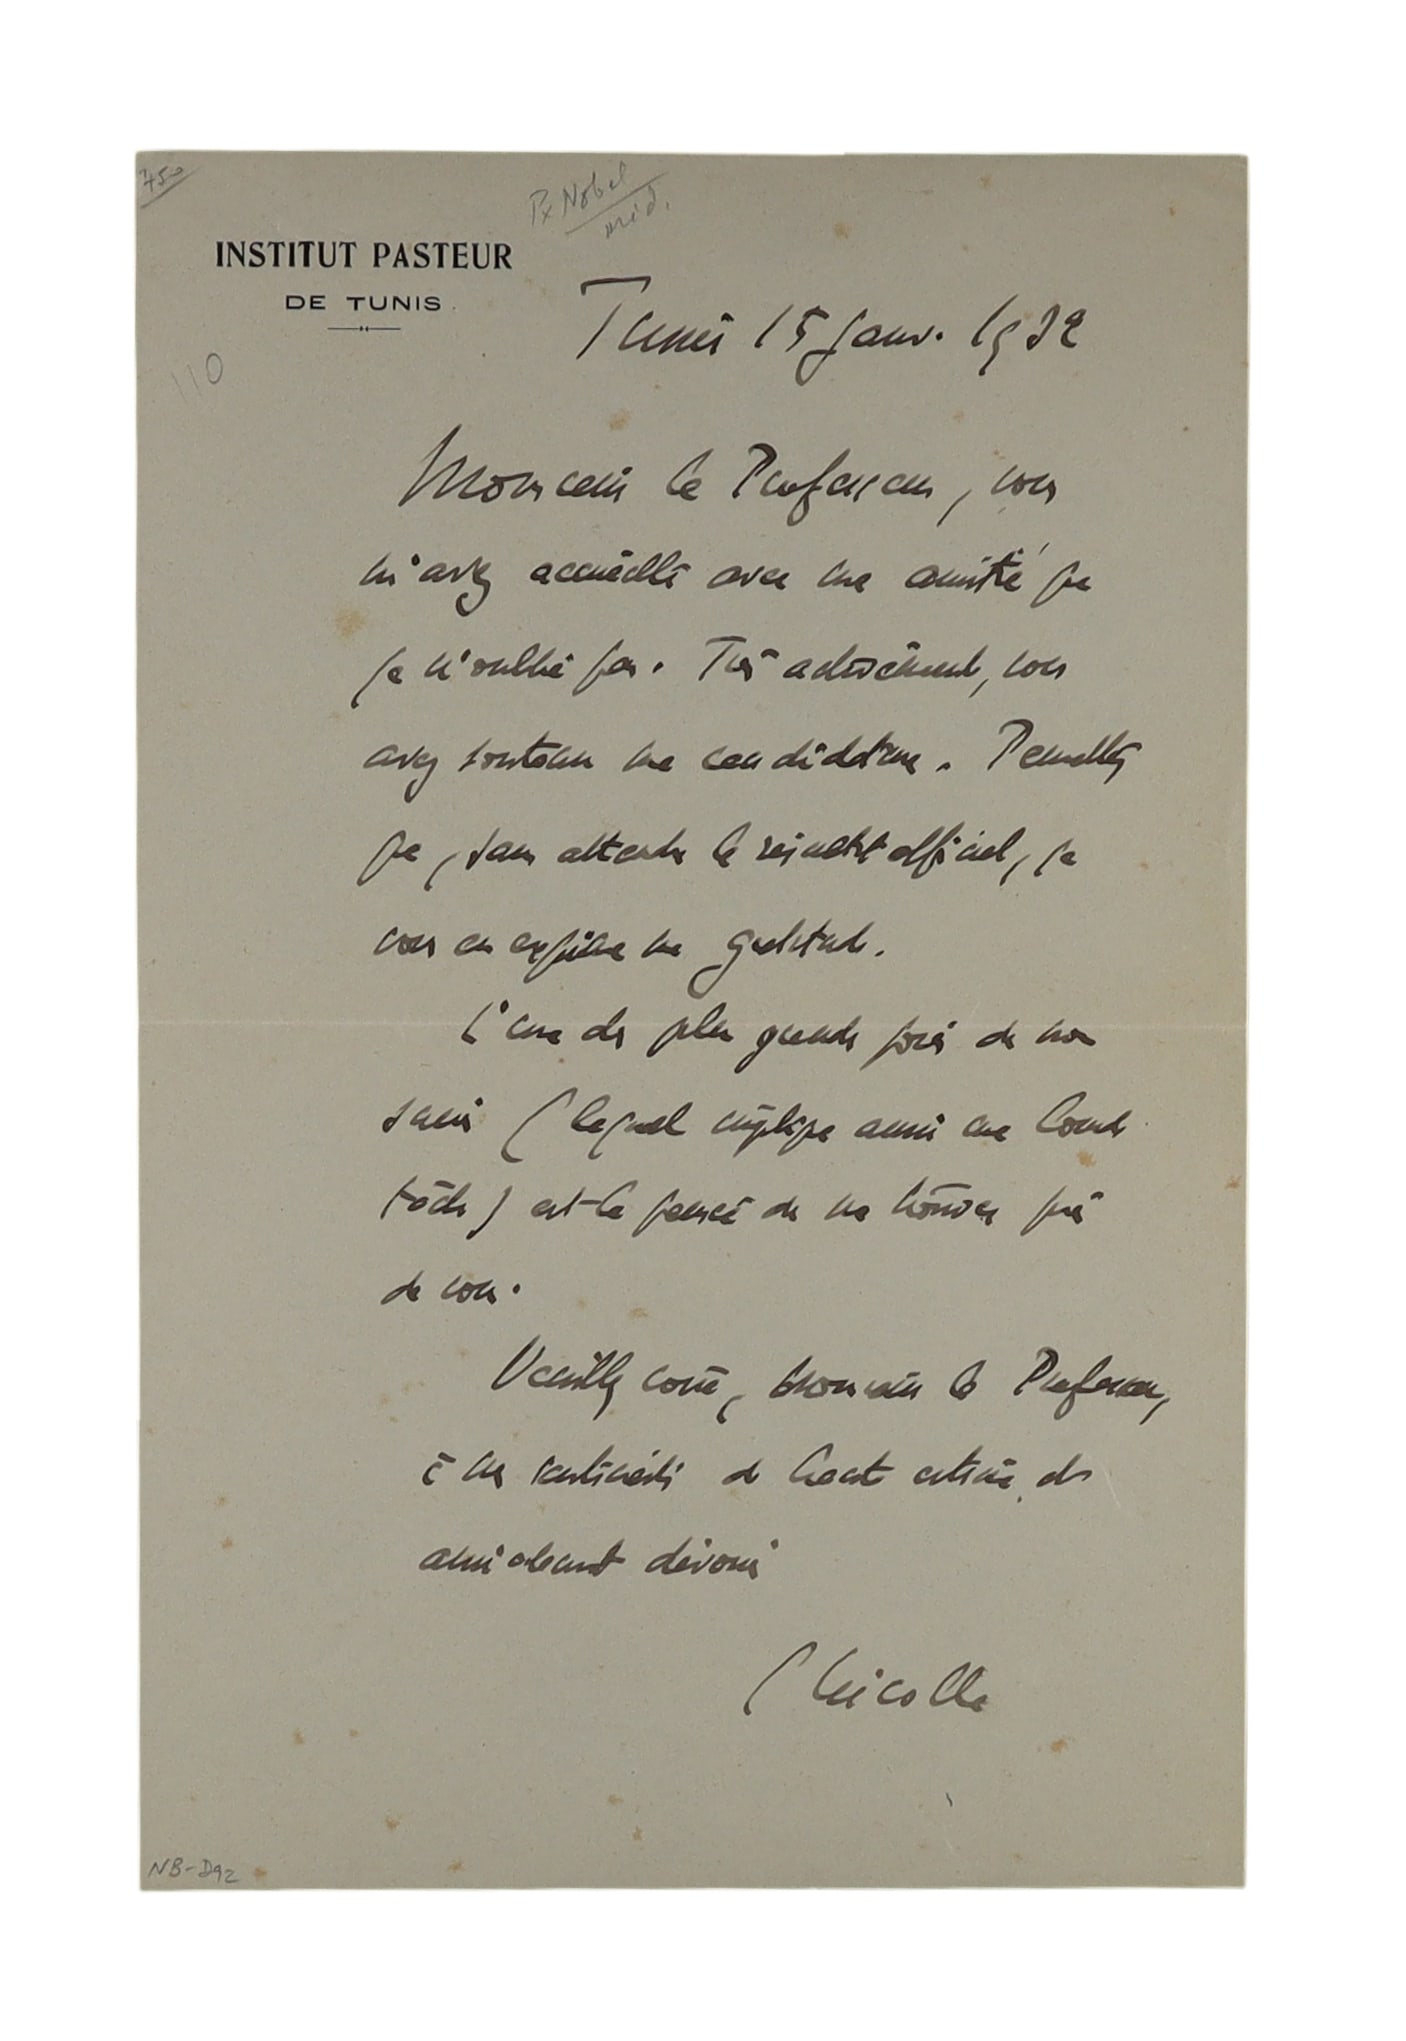 750
Px Nobel
méd.
INSTITUT PASTEUR
DE TUNIS
Tunis 15 janv. 1932
110
Monsieur le Professeur, vous
m'avez accueilli avec une amitié que
je n'oublie pas. Très activement, vous
avez soutenu ma candidature. Permettez
que, sans attendre le résultat officiel, je
vous en exprime ma gratitude.
L'une des plus grandes joies de mon
succès (lequel implique aussi une lourde
tâche) est la pensée de me trouver près
de vous.
Veuillez croire, Monsieur le Professeur,
à mes sentiments de haute estime et
amicalement dévoués
C Nicolle
NB-D92